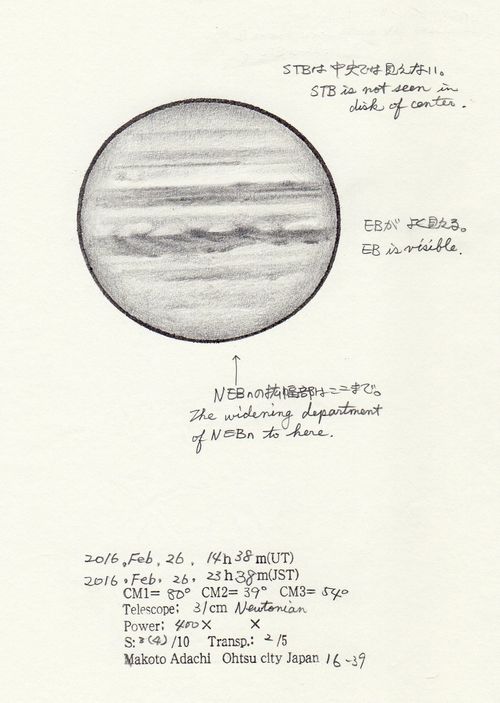 STBは中央では見えない。
STB is not seen in
disk of center.
EBがよく見える。
EB is visible.
NEBnの拡幅部はここまで。
The widening department
of NEBn to here.
2016, Feb, 26, 14h38m(UT)
2016, Feb, 26, 23h38m(JST)
CM1= 80° CM2= 39° CM3= 54°
Telescope: 31cm Newtonian
Power: 400× ×
S: 3(4)/10 Transp.: 2/5
Makoto Adachi Ohtsu city Japan 16-39